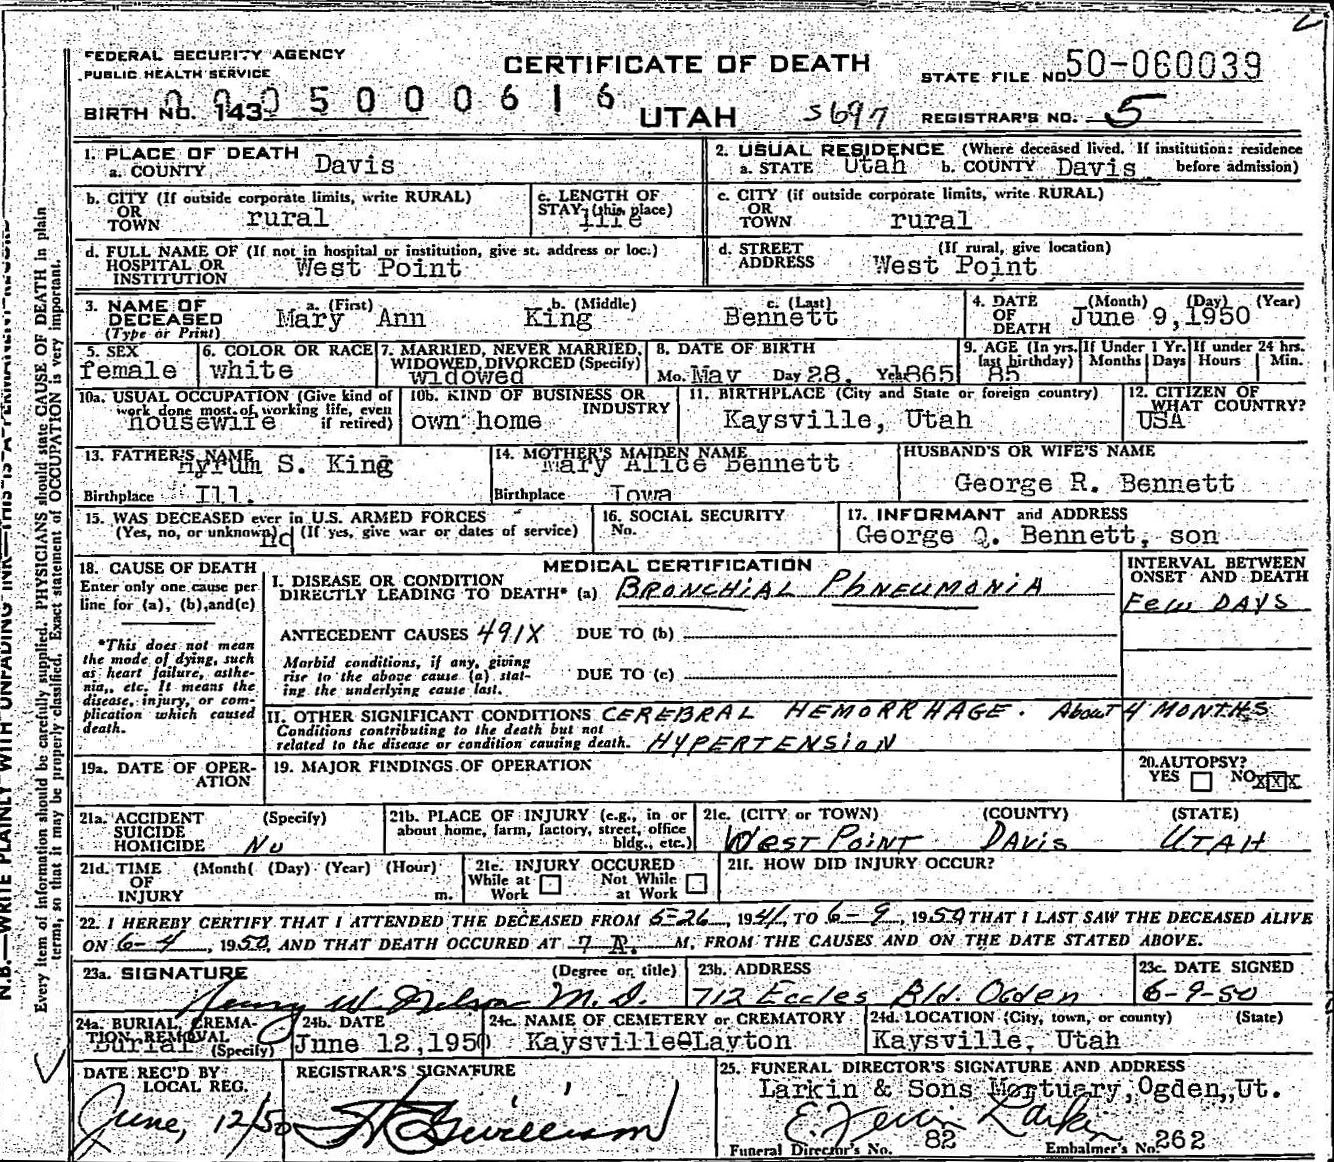 FEDERAL SECURITY AGENCY
PUBLIC HEALTH SERVICE
BIRTH NO. 143
0 0 0 5 0 0 0 6 1 6
CERTIFICATE OF DEATH
UTAH
S697
STATE FILE NO. 50-060039
REGISTRAR'S NO. 5
1. PLACE OF DEATH
a. COUNTY Davis
2. USUAL RESIDENCE (Where deceased lived. If institution: residence before admission)
a. STATE Utah b. COUNTY Davis
b. CITY (If outside corporate limits, write RURAL)
OR
TOWN rural
c. LENGTH OF
STAY (this place)
life
c. CITY (if outside corporate limits, write RURAL)
OR
TOWN rural
d. FULL NAME OF (If not in hospital or institution, give st. address or loc.)
HOSPITAL OR
INSTITUTION West Point
d. STREET (If rural, give location)
ADDRESS West Point
3. NAME OF DECEASED
(Type or Print)
a. (First) b. (Middle) c. (Last)
Mary Ann King Bennett
4. DATE OF DEATH (Month) (Day) (Year)
June 9,1950
5. SEX
female
6. COLOR OR RACE
white
7. MARRIED, NEVER MARRIED,
WIDOWED, DIVORCED (Specify)
widowed
8. DATE OF BIRTH
Mo. May Day 28, Yr. 1865
9. AGE (In yrs. last birthday) If Under 1 Yr. If under 24 hrs.
85 Months Days Hours Min.
10a. USUAL OCCUPATION (Give kind of
work done most of working life, even
if retired)
housewife
10b. KIND OF BUSINESS OR
INDUSTRY
own home
11. BIRTHPLACE (City and State or foreign country)
Kaysville, Utah
12. CITIZEN OF
WHAT COUNTRY?
USA
13. FATHER'S NAME
Hyrum S. King
Birthplace Ill.
14. MOTHER'S MAIDEN NAME
Mary Alice Bennett
Birthplace Iowa
HUSBAND'S OR WIFE'S NAME
George R. Bennett
15. WAS DECEASED ever in U.S. ARMED FORCES
(Yes, no, or unknown) no (If yes, give war or dates of service)
16. SOCIAL SECURITY
No.
17. INFORMANT and ADDRESS
George Q. Bennett, son
18. CAUSE OF DEATH
Enter only one cause per
line for (a), (b), and (c)
*This does not mean
the mode of dying, such
as heart failure, asthe-
nia, etc. It means the
disease, injury, or com-
plication which caused
death.
MEDICAL CERTIFICATION
I. DISEASE OR CONDITION
DIRECTLY LEADING TO DEATH* (a) BRONCHIAL PhNEUMONIA
ANTECEDENT CAUSES 491X DUE TO (b)
Morbid conditions, if any, giving
rise to the above cause (a) stat-
ing the underlying cause last.
DUE TO (c)
INTERVAL BETWEEN
ONSET AND DEATH
FEW DAYS
II. OTHER SIGNIFICANT CONDITIONS CEREBRAL HEMORRHAGE. About 4 MONTHS
Conditions contributing to the death but not
related to the disease or condition causing death. HYPERTENSION
19a. DATE OF OPER-
ATION
19. MAJOR FINDINGS OF OPERATION
20. AUTOPSY?
YES NO XXX
21a. ACCIDENT (Specify)
SUICIDE
HOMICIDE No
21b. PLACE OF INJURY (e.g., in or
about home, farm, factory, street, office
bldg., etc.)
21c. (CITY or TOWN) (COUNTY) (STATE)
WEST POINT DAVIS UTAH
21d. TIME (Month( (Day) (Year) (Hour)
OF
INJURY m.
21e. INJURY OCCURED
While at Work Not While at Work
21f. HOW DID INJURY OCCUR?
22. I HEREBY CERTIFY THAT I ATTENDED THE DECEASED FROM 6-26, 1941, TO 6-9, 1950 THAT I LAST SAW THE DECEASED ALIVE
ON 6-4, 1950, AND THAT DEATH OCCURED AT 7 A. M., FROM THE CAUSES AND ON THE DATE STATED ABOVE.
23a. SIGNATURE (Degree or title)
Henry W Nelson M.D.
23b. ADDRESS
712 Eccles Bld Ogden
23c. DATE SIGNED
6-9-50
24a. BURIAL, CREMA-
TION, REMOVAL
(Specify)
Burial
24b. DATE
June 12,1950
24c. NAME OF CEMETERY or CREMATORY
Kaysville Layton
24d. LOCATION (City, town, or county) (State)
Kaysville, Utah
DATE REC'D BY
LOCAL REG.
June, 12/50
REGISTRAR'S SIGNATURE
25. FUNERAL DIRECTOR'S SIGNATURE AND ADDRESS
Larkin & Sons Mortuary, Ogden, Ut.
Larkin
Funeral Director's No. 82 Embalmer's No. 262
Every item of information should be carefully supplied. PHYSICIANS should state CAUSE OF DEATH in plain
terms, so that it may be properly classified. Exact statement of OCCUPATION is very important.